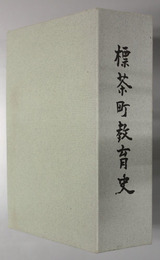 標茶町教育史